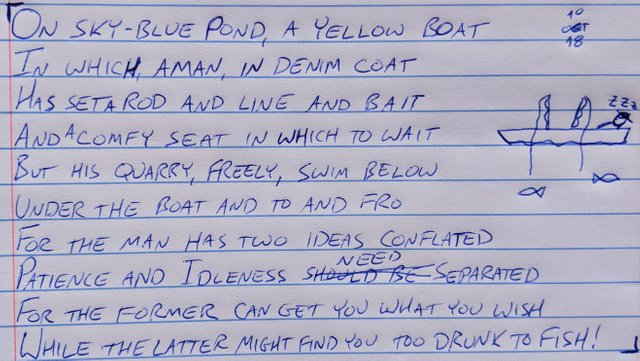 ON SKY-BLUE POND, A YELLOW BOAT
10
OCT
18
IN WHICH, A MAN, IN DENIM COAT
HAS SET A ROD AND LINE AND BAIT
ZZZ
AND A COMFY SEAT IN WHICH TO WAIT
BUT HIS QUARRY, FREELY, SWIM BELOW
UNDER THE BOAT AND TO AND FRO
FOR THE MAN HAS TWO IDEAS CONFLATED
PATIENCE AND IDLENESS SHOULD BE NEED SEPARATED
FOR THE FORMER CAN GET YOU WHAT YOU WISH
WHILE THE LATTER MIGHT FIND YOU TOO DRUNK TO FISH!